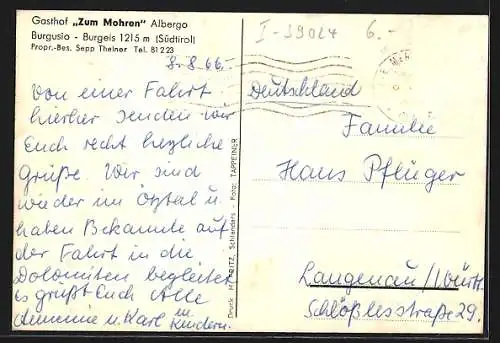 Gasthof „Zum Mohren" Albergo
Burgusio - Burgeis 1215 m (Südtirol)
Propr.-Bes. Sepp Theiner Tel. 81223
I-39024 6.-
8.8.66.
Von einer Fahrt
hierher senden wir
Euch recht herzliche
Grüße. Wir sind
wieder im Ötztal u.
haben Bekannte auf
der Fahrt in die
Dolomiten begleitet
es grüßt Euch Alle
u. Karl m.
Kindern.
Druck: H. Schlanders - Foto: TAPPEINER
Deutschland
Familie
Hans Pflüger
Langenau/Württ.
Schlößlesstraße 29.